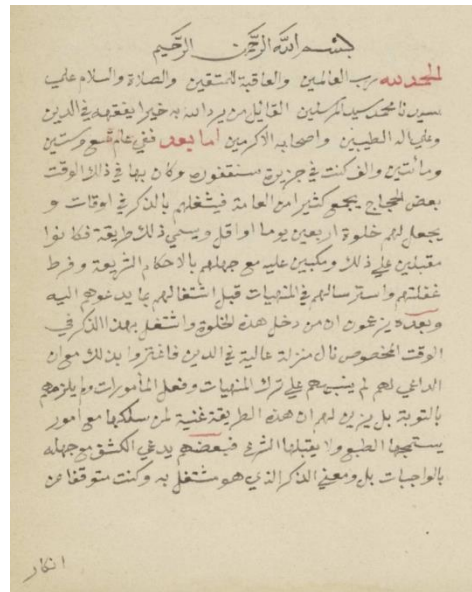 بسم الله الرحمن الرحيم
الحمد لله رب العالمين والعاقبة للمتقين والصلاة والسلام على
سيدنا محمد سيد المرسلين القائل من يرد الله به خيرا يفقهه في الدين
وعلى اله الطيبين واصحابه الاكرمين اما بعد ففي عام تسع وستين
ومائتين والف كنت في جزيرة سنقفوره وكان بها في ذلك الوقت
بعض الحجاج يجمع كثيرا من العامة فيشغلهم بالذكر في اوقات و
يجعل لهم خلوة اربعين يوما او اقل ويسمي ذلك طريقة فكانوا
مقبلين على ذلك ومكبين عليه مع جهلهم بالاحكام الشريعة وفرط
غفلتهم واسترسالهم في المنهيات قبل اشتغالهم بما يدعوهم اليه
وبعده يزعمون ان من دخل هذه الخلوة واشتغل بهذا الذكر في
الوقت المخصوص نال منزلة عالية في الدين فاغتروا بذلك مع ان
الداعي لهم لم ينبههم على ترك المنهيات وفعل المأمورات ولم يلزمهم
بالتوبة بل يزين لهم ان هذه الطريقة غنية لمن سلكها مع أمور
يستمجها الطبع ولا يقبلها الشرع فبعضهم يدعي الكشف مع جهله
بالواجبات بل ومعنى الذكر الذي هو مشتغل به وكنت متوقفا عن
انكار